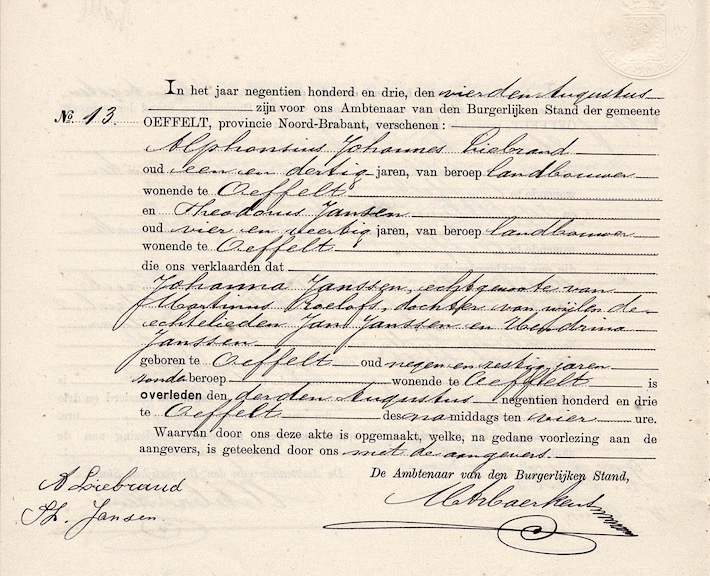 In het jaar negentien honderd en drie, den vierden Augustus
zijn voor ons Ambtenaar van den Burgerlijken Stand der gemeente
No. 13. OEFFELT, provincie Noord-Brabant, verschenen:
Alphonsius Johannes Liebrand
oud een en dertig jaren, van beroep landbouwer
wonende te Oeffelt
en Theodorus Jansen
oud vier en veertig jaren, van beroep landbouwer
wonende te Oeffelt
die ons verklaarden dat
Johanna Janssen, echtgenoote van
Martinus Roelofs, dochter van wijlen de
echtelieden Jan Janssen en Hendrina
Janssen
geboren te Oeffelt oud negen en zestig jaren
zonder beroep wonende te Oeffelt is
overleden den derden Augustus negentien honderd en drie
te Oeffelt des na middags ten vier ure.
Waarvan door ons deze akte is opgemaakt, welke, na gedane voorlezing aan de
aangevers, is geteekend door ons met de aangevers.
De Ambtenaar van den Burgerlijken Stand,
A Liebrand
Th. Jansen.